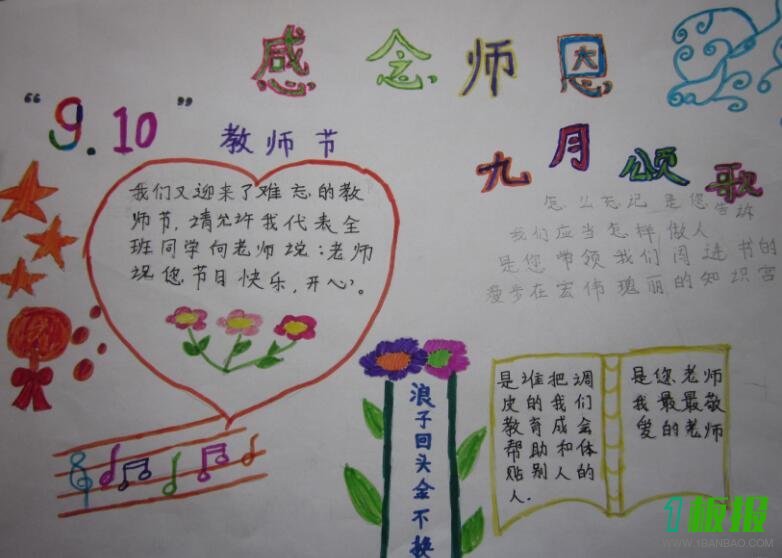 感念师恩
“9.10”
教师节
九月颂歌
我们又迎来了难忘的教
师节,请允许我代表全
班同学向老师说:老师
祝您节日快乐,开心。
怎么忘记 是您告诉
我们应当怎样做人
是您带领我们阅进书的
漫步在宏伟瑰丽的知识宫
浪子回头金不换
是谁把调
皮的我们
教育成会
帮助和体
贴别人的
人.
是您、老师
我最最敬
爱的老师
1板报
WWW.1BANBAO.COM